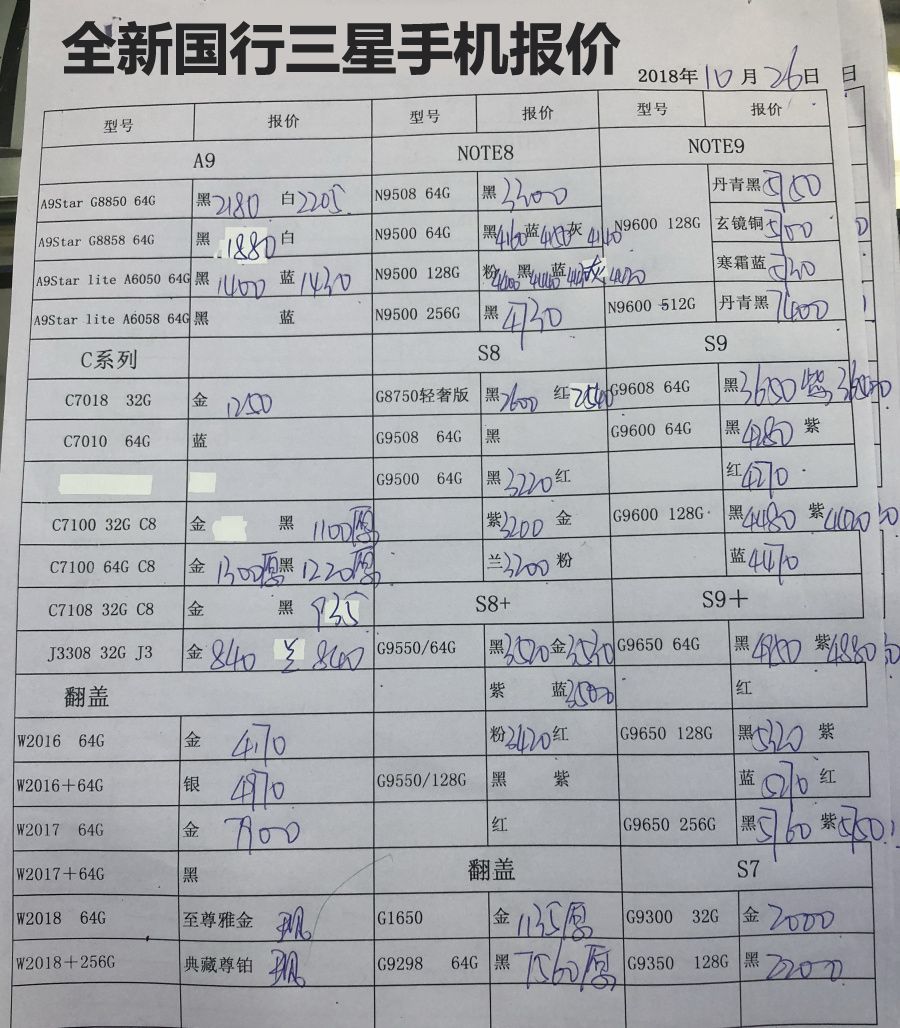 全新国行三星手机报价
2018年10月26日 日
型号 报价 型号 报价 型号 报价
A9 NOTE8 NOTE9
A9Star G8850 64G 黑2180 白2205 N9508 64G 黑3300 丹青黑5150
A9Star G8858 64G 黑1880 白 N9500 64G 黑4160蓝4150灰4140 N9600 128G 玄镜铜5100
A9Star lite A6050 64G 黑1400 蓝1430 N9500 128G 粉 黑 蓝 灰 寒霜蓝
A9Star lite A6058 64G 黑 蓝 N9500 256G 黑4730 N9600 512G 丹青黑7400
C系列 S8 S9
C7018 32G 金 1250 G8750轻奢版 黑2600 红2540 G9608 64G 黑3650 紫
C7010 64G 蓝 G9508 64G 黑 G9600 64G 黑4280 紫
G9500 64G 黑3220红 红4270
C7100 32G C8 金 黑 1100原 紫3200 金 G9600 128G 黑4480 紫
C7100 64G C8 金1300原黑1220原 兰3200 粉 蓝4470
C7108 32G C8 金 黑 935 S8+ S9+
J3308 32G J3 金840 兰840 G9550/64G 黑3520金3530 G9650 64G 黑 紫4880
翻盖 紫 蓝3500 红
W2016 64G 金 4170 粉3420红 G9650 128G 黑5320 紫
W2016+64G 银 4970 G9550/128G 黑 紫 蓝5270 红
W2017 64G 金 7900 红 G9650 256G 黑5760 紫5750
W2017+64G 黑 翻盖 S7
W2018 64G 至尊雅金 现 G1650 金1135原 G9300 32G 金2000
W2018+256G 典藏尊铂 现 G9298 64G 黑7560原 G9350 128G 黑2200